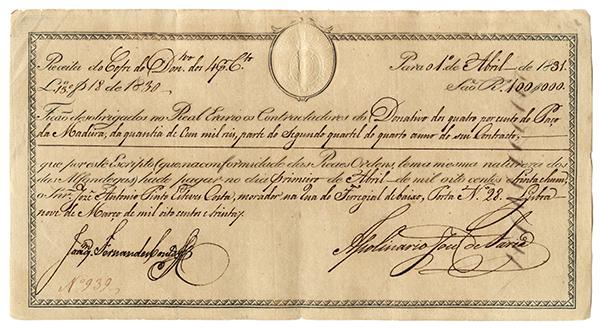 Receita do Cofre do Don.tvo dos 4 p. C.to Para o 1.º de Abril de 1831
L.º 18 de 1830 São R.s 100$000.
Ficão desobrigados no Real Erario os Contractadores do Donativo dos quatro por cento do Paço
da Madeira, da quantia de Cem mil reis, parte do Segundo quartel do quarto anno do seu Contracto,
que por este Escripto (que na conformidade das Reaes Ordens, tem a mesma natureza dos
das Alfandegas) hade pagar no dia Primeiro de Abril de mil oito centos e trinta e hum,
o Snr. José Antonio Pinto Esteves Costa, morador na Rua do Ferregial de baixo, Porta N.º 28. Lisboa
nove de Março de mil oito centos e trinta
Joaq. Fernandes José de Faria
N.º 939